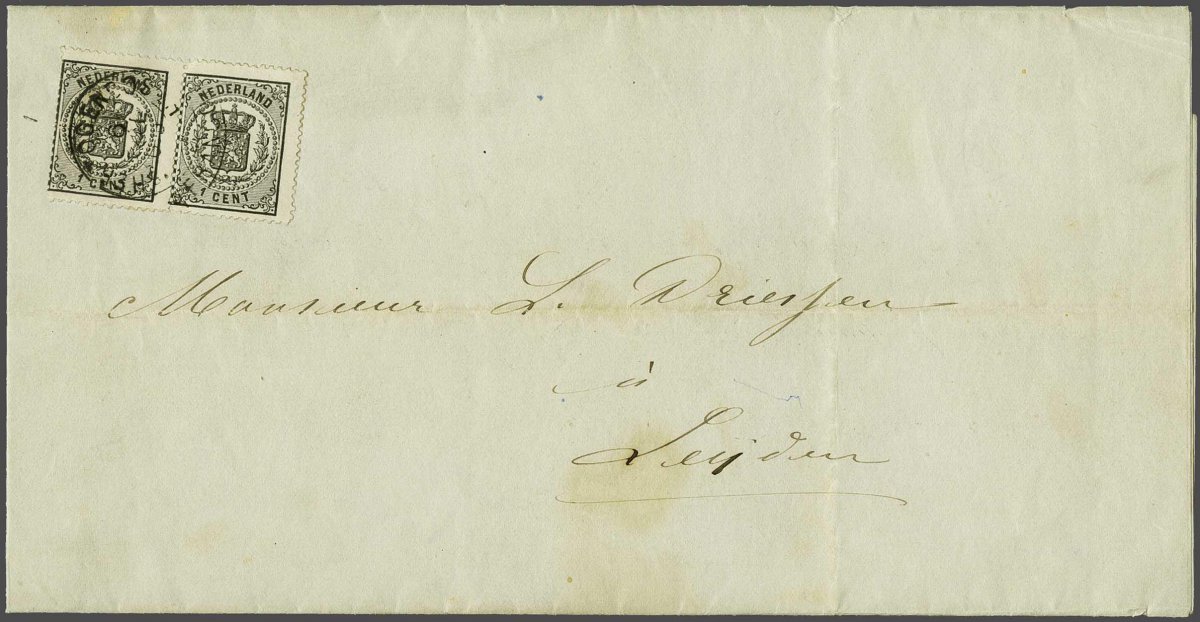 NEDERLAND
1 CENT
NEDERLAND
1 CENT
Monsieur L. Driessen
à
Leijden